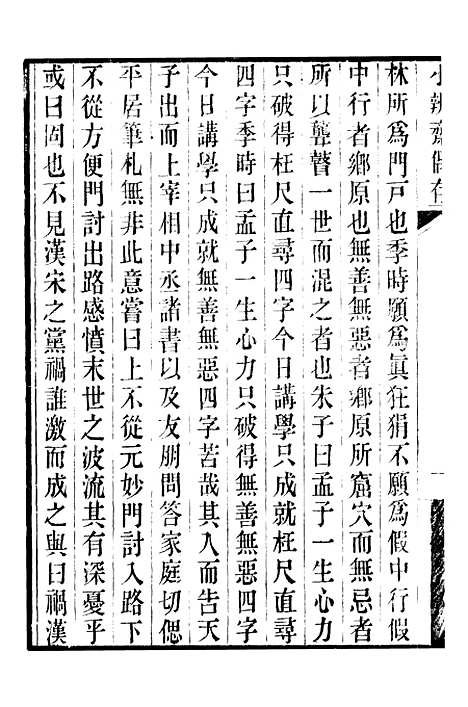 小辨齋偶存
林所爲門戸也季時願爲眞狂狷不願爲假中行假
中行者鄉原也無善無惡者鄉原所窟穴而無忌者
所以聾瞽一世而混之者也朱子曰孟子一生心力
只破得枉尺直尋四字今日講學只成就枉尺直尋
四字季時曰孟子一生心力只破得無善無惡四字
今日講學只成就無善無惡四字苦哉其入而告天
子出而上宰相中丞諸書以及友朋問答家庭切偲
平居筆札無非此意嘗曰上不從元妙門討入路下
不從方便門討出路感憤末世之波流其有深憂乎
或曰固也不見漢宋之黨禍誰激而成之與曰禍漢